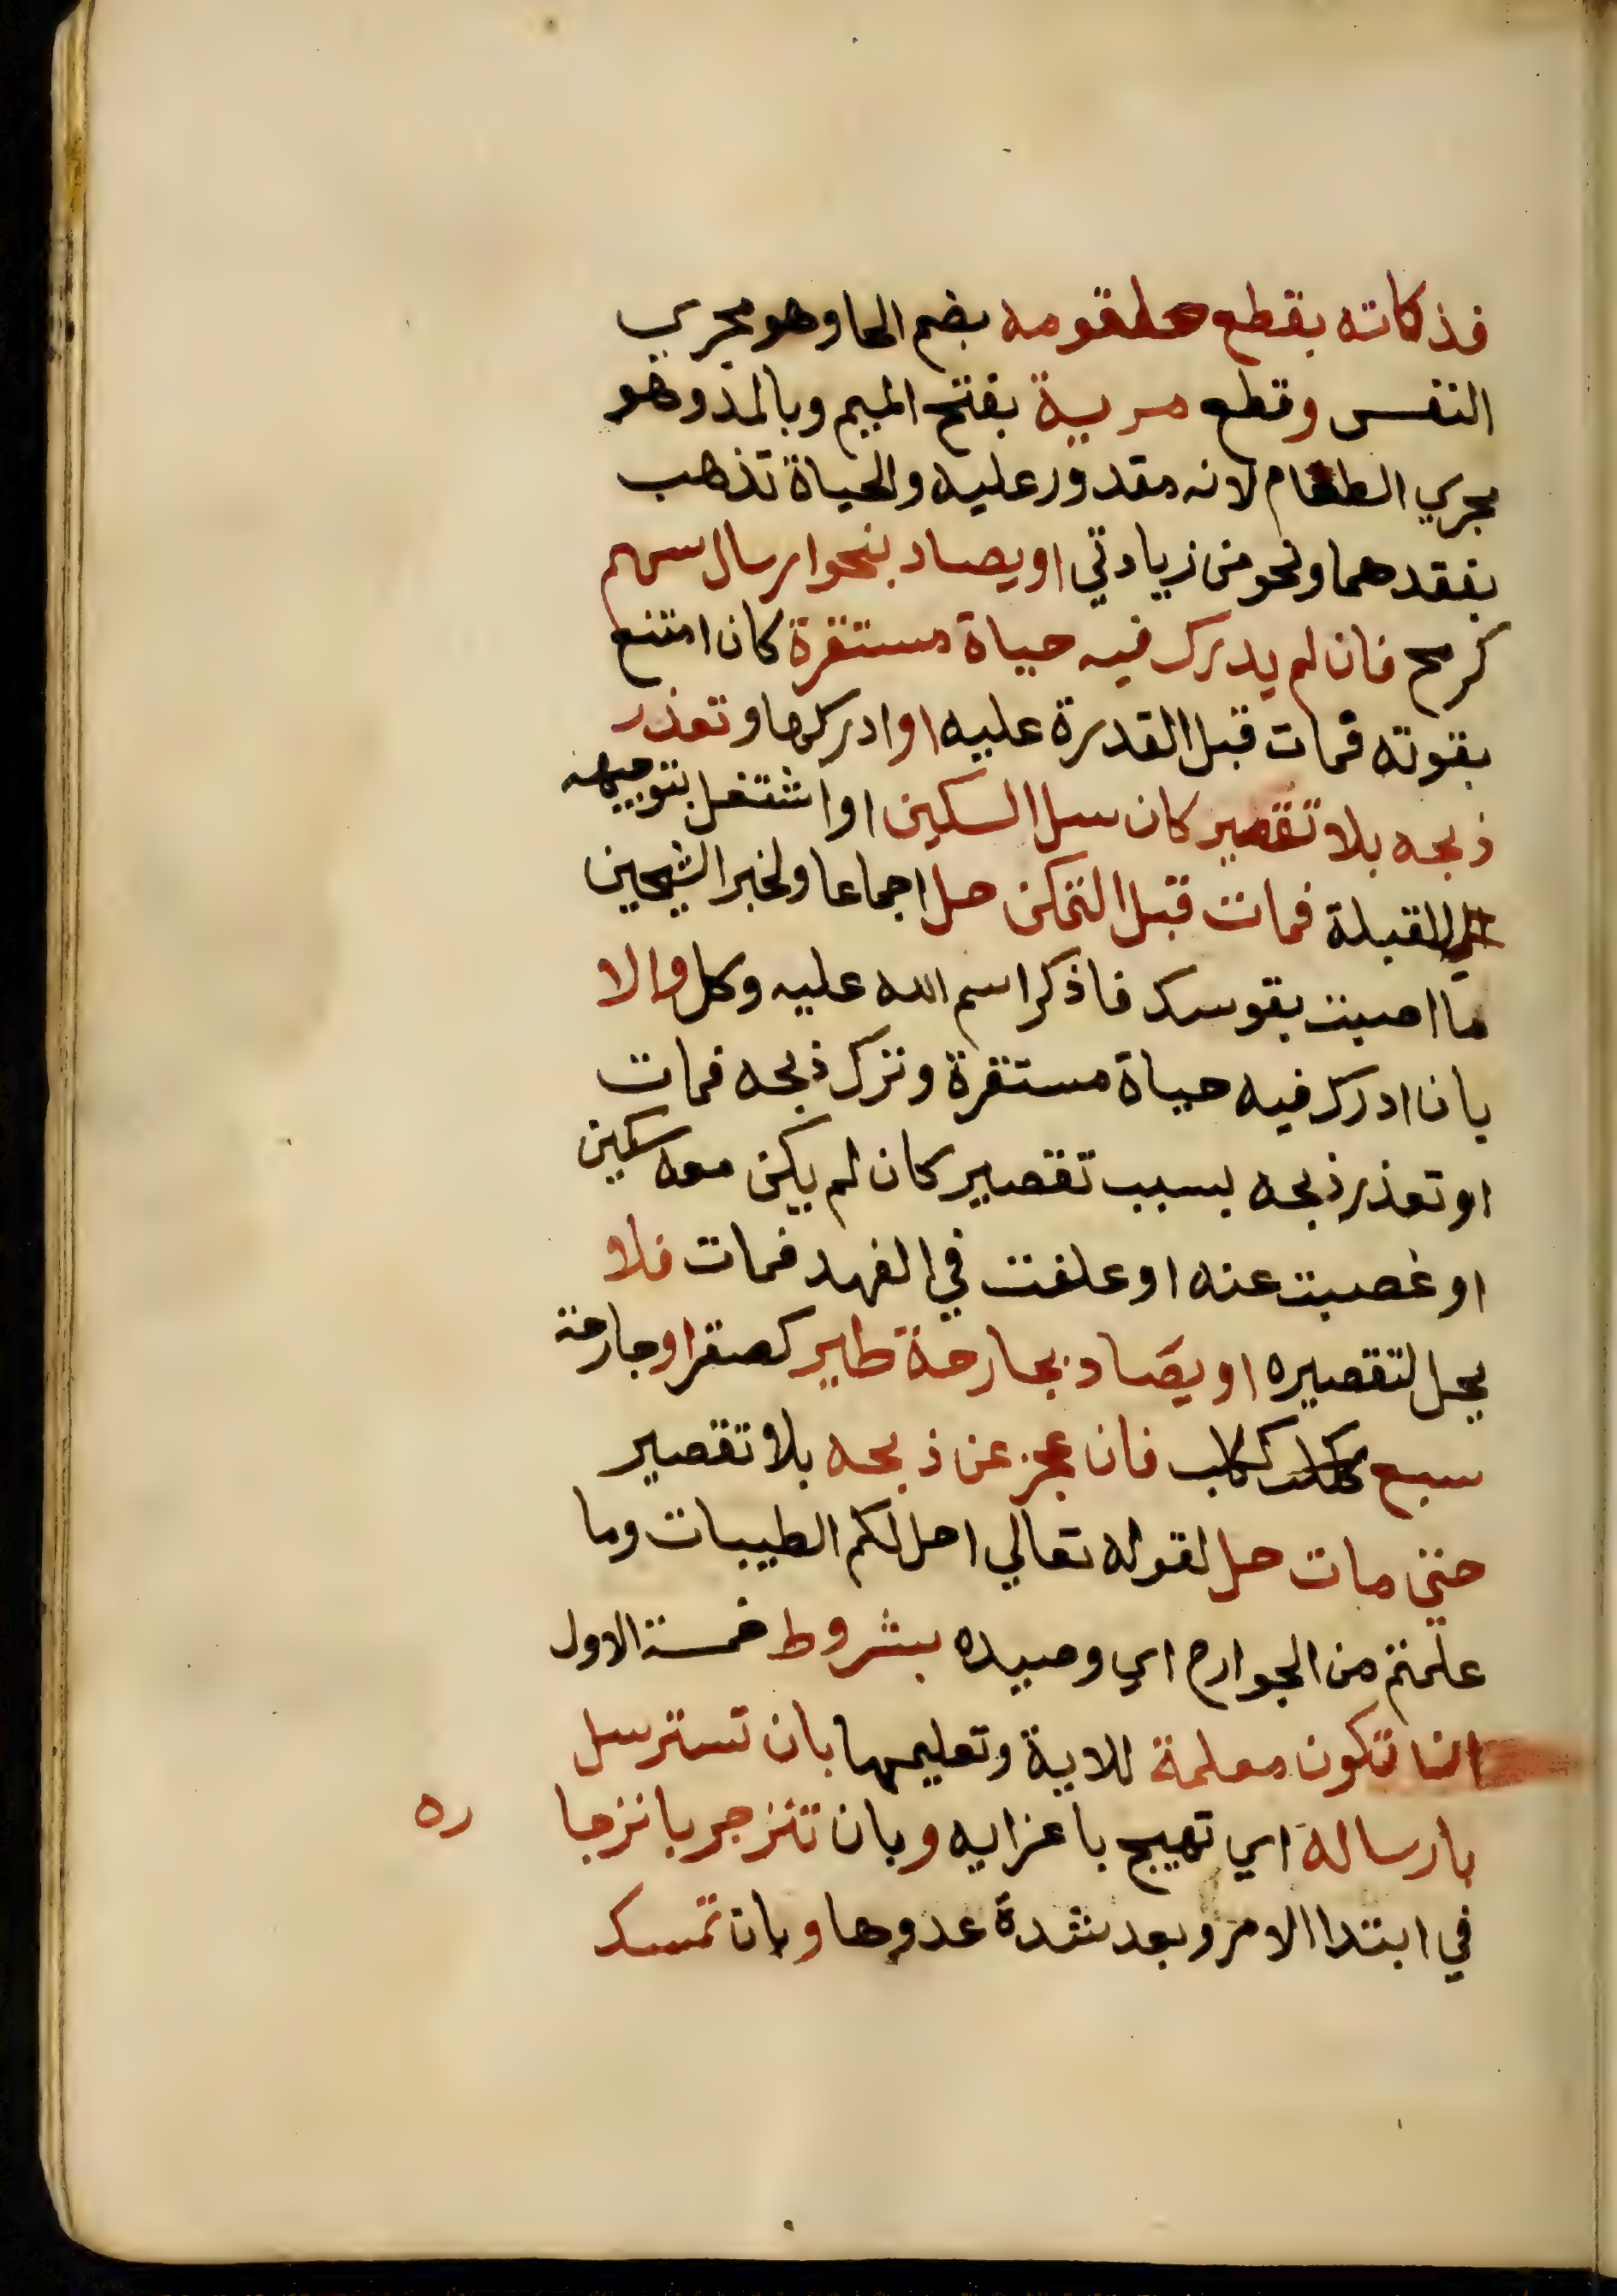 فذكاته بقطع حلقومه بضم الحا وهو مجري
النفس وقطع مرية بفتح الميم وبالمد وهو
مجري الطعام لانه مقدور عليه والحياة تذهب
بفقدهما ونحو من زيادتي او يصاد بنحو ارسال سهم
كرمح فان لم يدرك فيه حياة مستقرة كان امتنع
بقوته فمات قبل القدرة عليه او ادركها وتعذر
ذبحه بلا تقصير كان سل السكين او اشتغل بتوجيهه
للقبلة فمات قبل التمكن حل اجماعا ولخبر الشيخين
ما اصبت بقوسك فاذكر اسم الله عليه وكل والا
بان ادرك فيه حياة مستقرة وترك ذبحه فمات
او تعذر ذبحه بسبب تقصير كان لم يكن معه سكين
او غصبت عنه او علقت في الغمد فمات فلا
يحل لتقصيره او يصاد بجارحة طير كصقر او جارحة
سبع ككلب فان عجز عن ذبحه بلا تقصير
حتي مات حل لقوله تعالي احل لكم الطيبات وما
علمتم من الجوارح اي وصيده بشروط خمسة الاول
ان تكون معلمة للاية وتعليمها بان تسترسل
بارساله اي تهيج باغرايه وبان تنزجر بانزجا ره
في ابتدا الامر وبعد شدة عدوها وبان تمسك